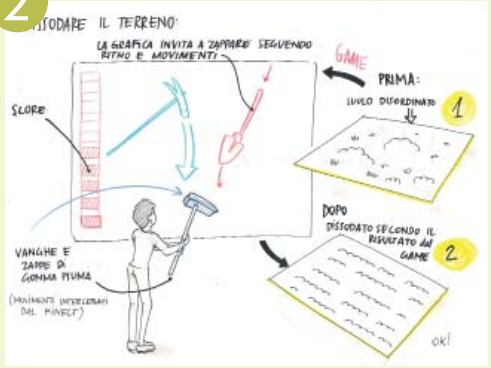 2
DISSODARE IL TERRENO:
LA GRAFICA INVITA A ZAPPARE SEGUENDO
RITMO E MOVIMENTI
GAME
PRIMA:
SUOLO DISORDINATO
1
SLORE
DOPO
DISSODATO SECONDO IL
RISULTATO DAL
GAME
2
VANGHE E
ZAPPE DI
GOMMA PIUMA
(MOVIMENTI INTERCETTATI
DAL KINECT)
OK!